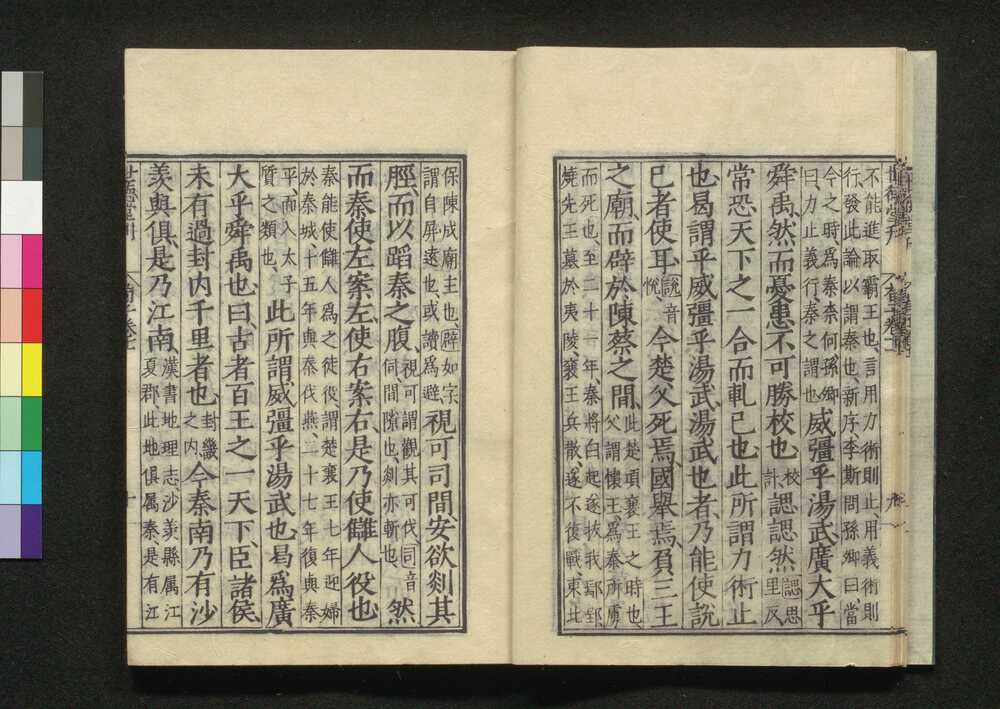 不能進取霸王也言用力術則止用義術則
行發此論以謂秦也新序李斯問孫卿曰當
今之時爲秦奈何孫卿
曰力術止義術行秦之謂也威彊乎湯武廣大乎
舜禹然而憂患不可勝校也校計諰諰然諰思里反
常恐天下之一合而軋己也此所謂力術止
也曷謂乎威彊乎湯武湯武也者乃能使說
己者使耳說音悅今楚父死焉國舉焉負三王
之廟而辟於陳蔡之間此楚頃襄王之時也父謂懷王爲秦所虜
而死也至二十一年秦將白起遂拔我鄢郢
燒先王墓於夷陵襄王兵散遂不復戰東北
保陳成廟主也辟如字
謂自屏遠也或讀爲避視可司間安欲剡其
脛而以蹈秦之腹視可謂觀其可伐司音伺間隙也剡亦斬也然
而秦使左案左使右案右是乃使讎人役也
秦能使讎人爲之徒役謂楚襄王七年迎婦
於秦城十五年與秦伐燕二十七年復與秦
平而入太子
質之類也此所謂威彊乎湯武也曷爲廣
大乎舜禹也曰古者百王之一天下臣諸侯
未有過封內千里者也封畿之內今秦南乃有沙
羡與俱是乃江南漢書地理志沙羡縣属江夏郡此地俱属秦是有江